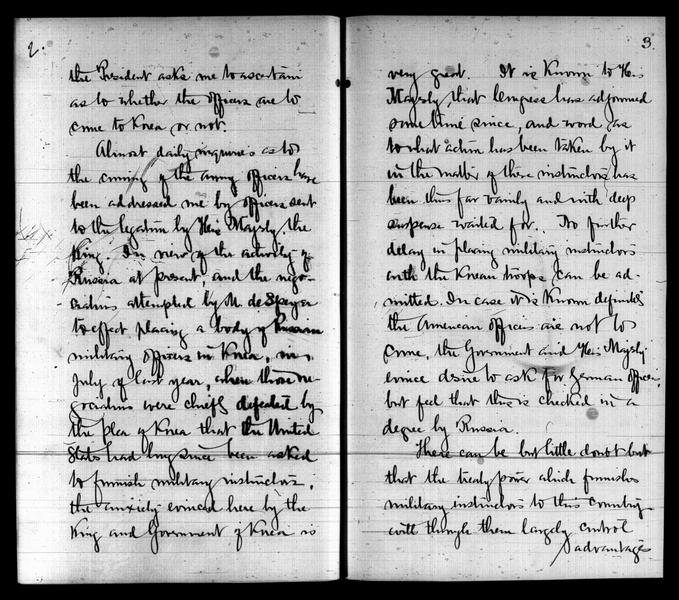 2.
the President asks me to ascertain
as to whether the officers are to
come to Korea or not.
Almost daily inquiries as to
the coming of the army officers have
been addressed me by officers sent
to the legation by His Majesty the
King. In view of the activity of
Russia at present, and the nego-
ciations attempted by M. de Speyer
to effect placing a body of Russian
military officers in Korea, in
July of last year, when those ne-
gociations were chiefly defeated by
the plea of Korea that the United
States had long since been asked
to furnish military instructors,
the anxiety evinced here by the
King and Government of Korea is
3.
very great. It is known to His
Majesty that Congress has adjourned
some time since, and word as
to what action has been taken by it
in the matter of these instructors has
been thus far vainly and with deep
suspense waited for. No further
delay in placing military instructors
with the Korean troops can be ad-
mitted. In case it is known definitely
the American officers are not to
come, the Government and His Majesty
evince desire to ask for German officers,
but feel that this is checked in a
degree by Russia.
There can be but little doubt but
that the treaty power which furnishes
military instructors to this country
will through them largely control
advantages